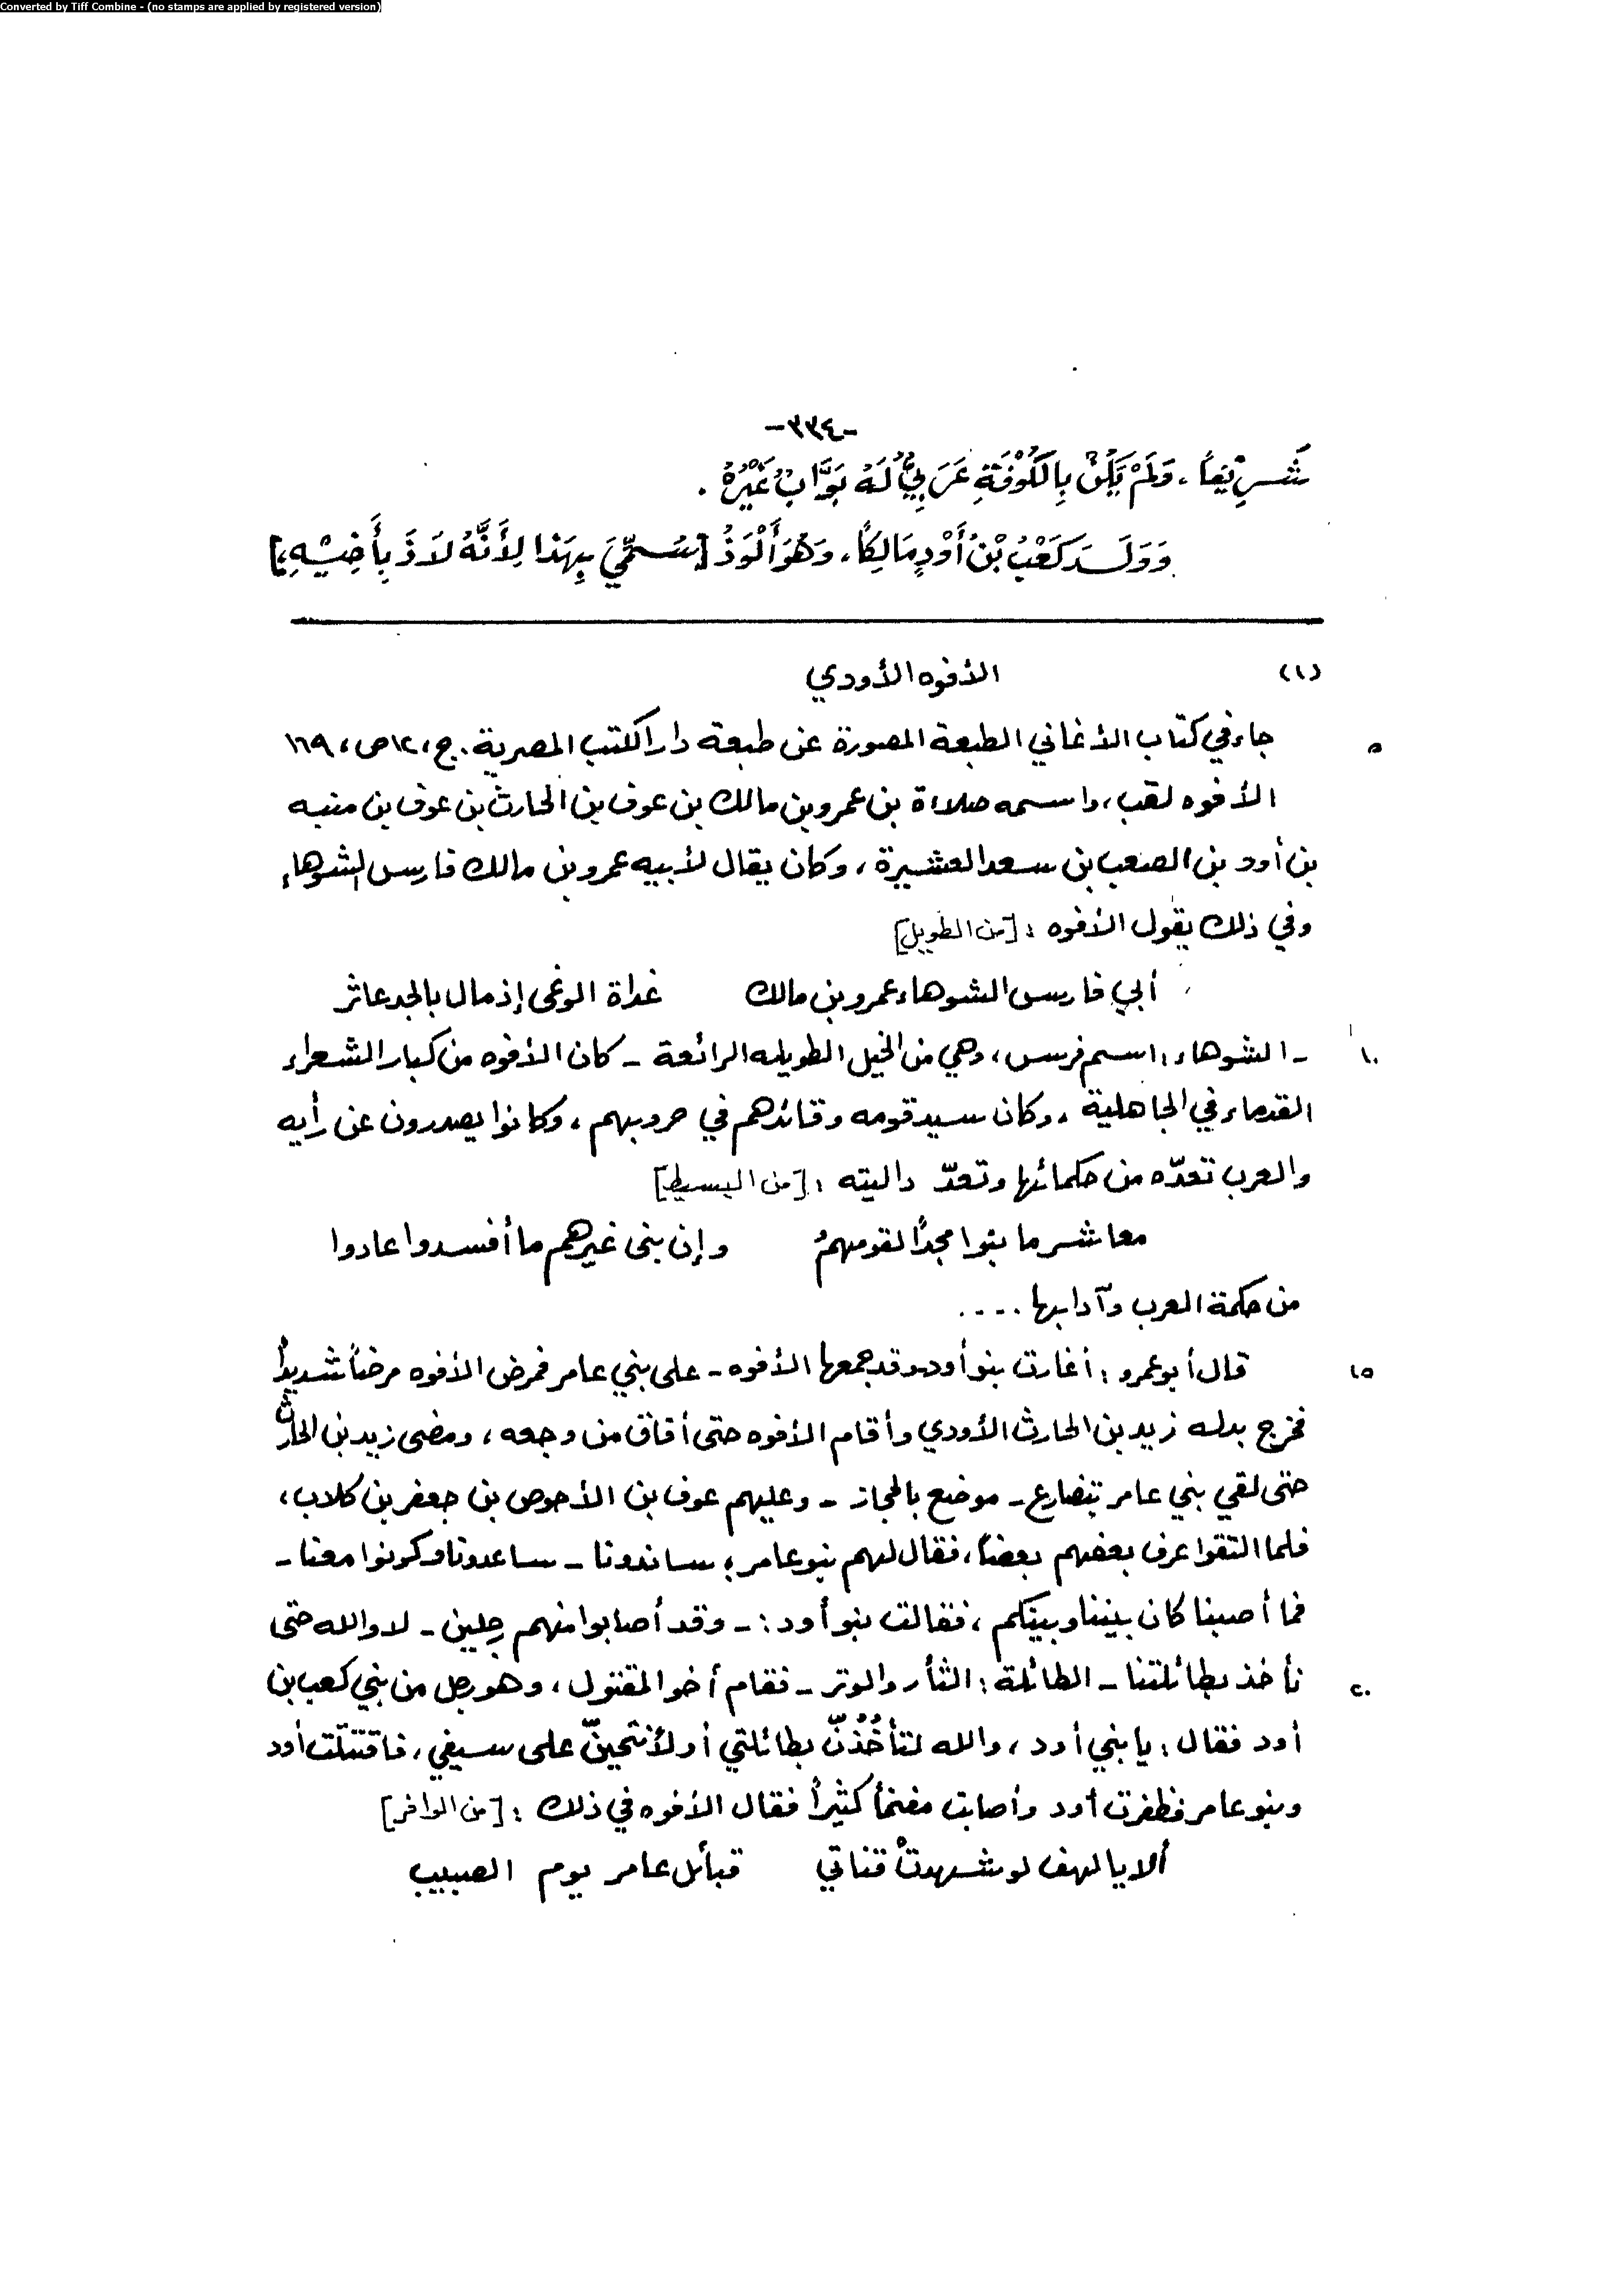 Converted by Tiff Combine - (no stamps are applied by registered version)
-٣٣٤-
شَرِيْفاً، وَلَمْ يَكُنْ بِالكُوْفَةِ عَرَبِيٌّ لَهُ بَوَّابٌ غَيْرُهُ.
وَوَلَدَ كَعْبُ بْنُ أَوْدٍ مَالِكاً، وَهُوَ أَلْوَذُ [سُمِّيَ بِهَذا لِأَنَّهُ لاَذَ بِأَخِيْهِ،]
(١) الأفوه الأودي
٥ جاء في كتاب الأغاني الطبعة المصورة عن طبعة دار الكتب المصرية. ج، ١٢ ص، ١٦٩
الأفوه لقب، واسمه صلاءة بن عمرو بن مالك بن عوف بن الحارث بن عوف بن منبه
بن أود بن الصعب بن سعد العشيرة، وكان يقال لأبيه عمرو بن مالك فارس الشوهاء
وفي ذلك يقول الأفوه : [من الطويل]
أبي فارس الشوهاء عمرو بن مالك غداة الوغى إذ مال بالجد عاثر
١٠ - الشوهاء: اسم فرس، وهي من الخيل الطويله الرائعة - كان الأفوه من كبار الشعراء
القدماء في الجاهلية، وكان سيد قومه وقائدهم في حروبهم، وكانوا يصدرون عن رأيه
والعرب تعدّه من حكمائها وتعدّ داليته : [من البسيط]
معاشر ما بنوا مجداً لقومهمُ وإن بنى غيرهم ما أفسدوا عادوا
من حكمة العرب وآدابها ....
١٥ قال أبو عمرو : أغارت بنو أود - وقد جمعها الأفوه - على بني عامر فمرض الأفوه مرضاً شديداً
فخرج بدله زيد بن الحارث الأودي وأقام الأفوه حتى أفاق من وجعه، ومضى زيد بن الحارث
حتى لقي بني عامر بتضارع - موضع بالحجاز - وعليهم عوف بن الأحوص بن جعفر بن كلاب،
فلما التقوا عرف بعضهم بعضاً، فقال لهم بنو عامر : ساندونا - ساعدونا وكونوا معنا -
فما أصبنا كان بيننا وبينكم، فقالت بنو أود : - وقد أصابوا منهم رجلين - لا والله حتى
٢٠ نأخذ بطائلتنا - الطائلة : الثأر والوتر - فقام أخو المقتول، وهو رجل من بني كعب بن
أود فقال : يا بني أود، والله لتأخُذُنّ بطائلتي أو لأنتحينّ على سيفي، فاقتتلت أود
وبنو عامر فظفرت أود وأصابت مغنماً كثيراً فقال الأفوه في ذلك : [من الوافر]
ألا يا لهف لو شهدتْ قناتي قبائل عامر يوم الصبيب